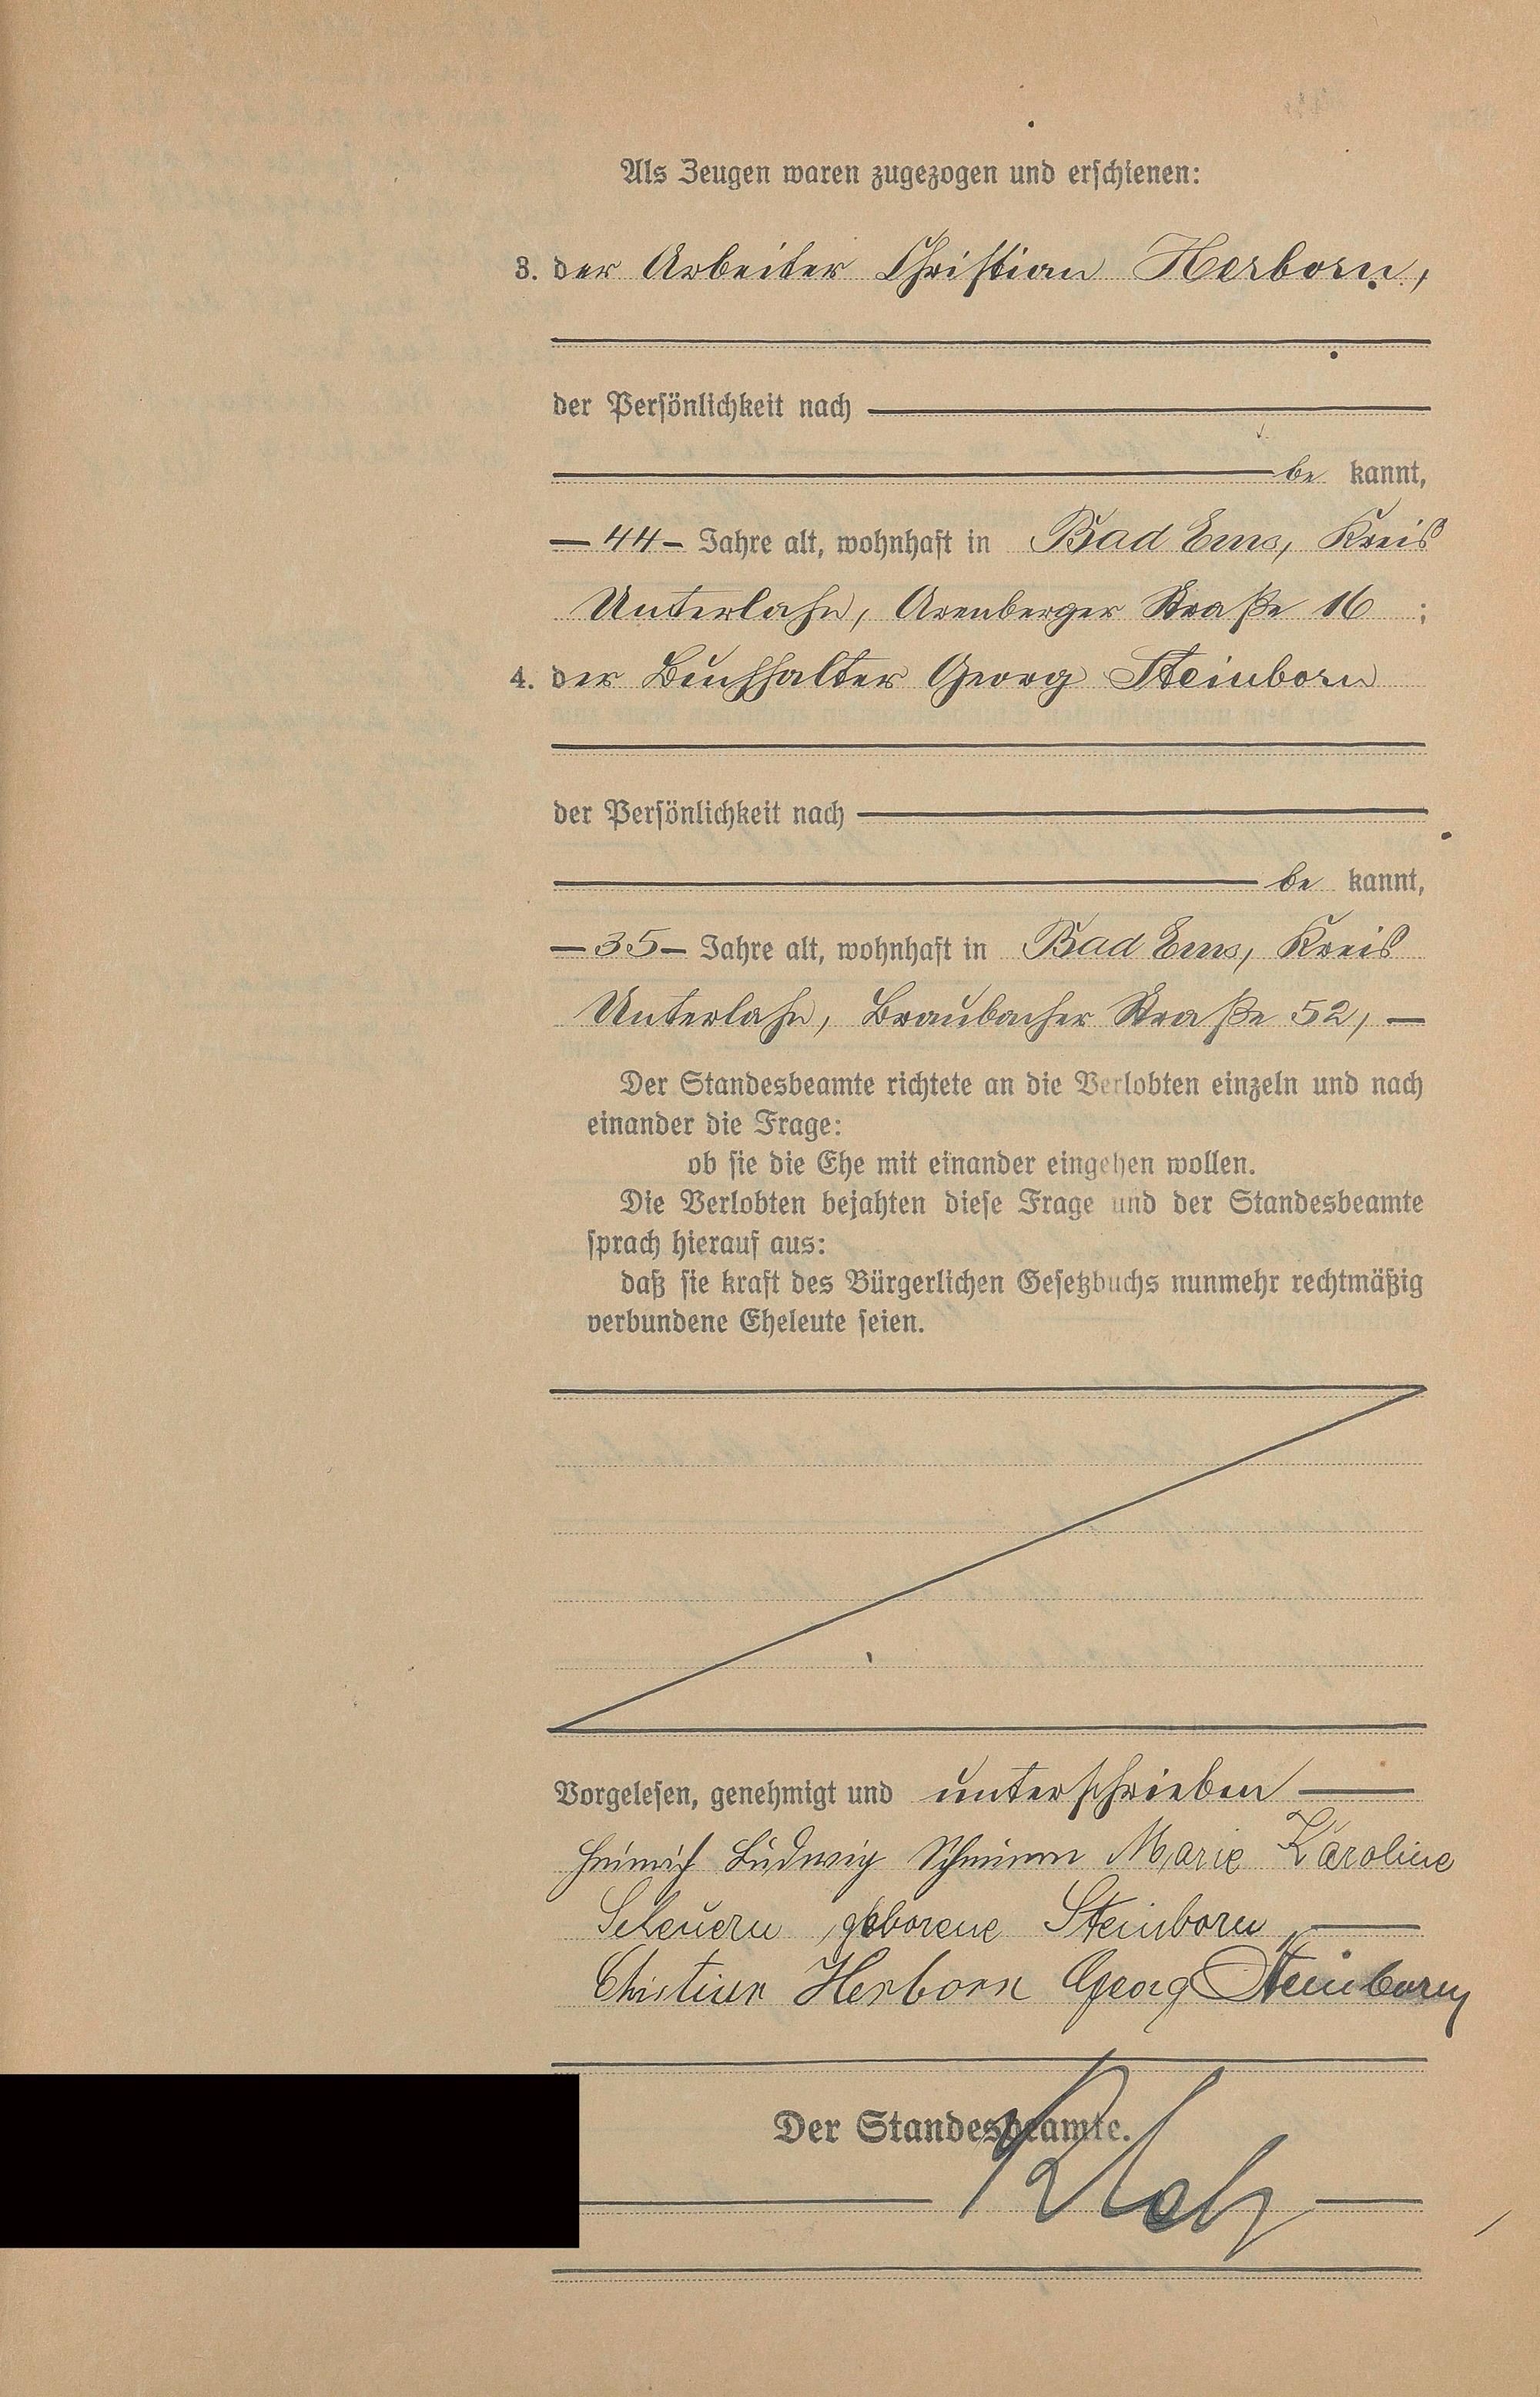 Als Zeugen waren zugezogen und erschienen:
3. der Arbeiter Christian Herborn,
der Persönlichkeit nach
be kannt,
— 44 — Jahre alt, wohnhaft in Bad Ems, Kreis
Unterlahn, Arenberger Straße 16 ;
4. der Buchhalter Georg Steinborn
der Persönlichkeit nach
be kannt,
— 35 — Jahre alt, wohnhaft in Bad Ems, Kreis
Unterlahn, Braubacher Straße 52, —
Der Standesbeamte richtete an die Verlobten einzeln und nach
einander die Frage:
ob sie die Ehe mit einander eingehen wollen.
Die Verlobten bejahten diese Frage und der Standesbeamte
sprach hierauf aus:
daß sie kraft des Bürgerlichen Gesetzbuchs nunmehr rechtmäßig
verbundene Eheleute seien.
Vorgelesen, genehmigt und unterschrieben —
Heinrich Ludwig Scheuern Marie Karoline
Scheuern geborene Steinborn —
Christian Herborn Georg Steinborn
Der Standesbeamte.